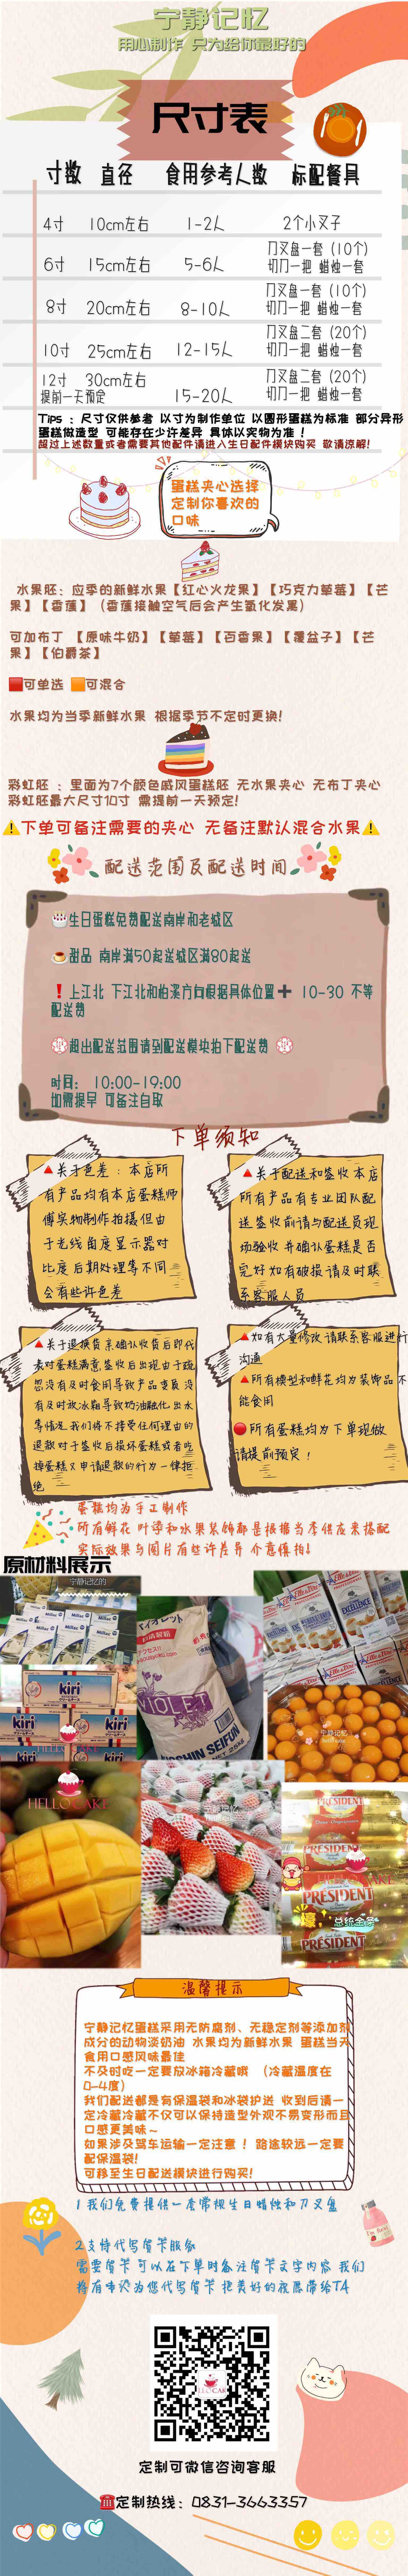 宁静记忆
用心制作 只为给你最好的
尺寸表
寸数 直径 食用参考人数 标配餐具
4寸 10cm左右 1-2人 2个小叉子
6寸 15cm左右 5-6人 刀叉盘一套（10个）
切刀一把 蜡烛一套
8寸 20cm左右 8-10人 刀叉盘一套（10个）
切刀一把 蜡烛一套
10寸 25cm左右 12-15人 刀叉盘二套（20个）
切刀一把 蜡烛一套
12寸 30cm左右 15-20人 刀叉盘二套（20个）
提前一天预定 切刀一把 蜡烛一套
Tips：尺寸仅供参考 以寸为制作单位 以圆形蛋糕为标准 部分异形
蛋糕做造型 可能存在少许差异 具体以实物为准！
超过上述数量或者需要其他配件请进入生日配件模块购买 敬请谅解！
蛋糕夹心选择
定制你喜欢的
口味
水果胚：应季的新鲜水果【红心火龙果】【巧克力草莓】【芒
果】【香蕉】（香蕉接触空气后会产生氧化发黑）
可加布丁 【原味牛奶】【草莓】【百香果】【覆盆子】【芒
果】【伯爵茶】
🟥可单选 🟧可混合
水果均为当季新鲜水果 根据季节不定时更换！
彩虹胚 ：里面为7个颜色戚风蛋糕胚 无水果夹心 无布丁夹心
彩虹胚最大尺寸10寸 需提前一天预定！
⚠️下单可备注需要的夹心 无备注默认混合水果⚠️
配送范围及配送时间
🎂生日蛋糕免费配送南岸和老城区
☕甜品 南岸满50起送城区满80起送
❗上江北 下江北和柏溪方向根据具体位置➕ 10-30 不等
配送费
💮超出配送范围请到配送模块拍下配送费 💮
时间： 10:00-19:00
如需提早 可备注自取
下单须知
🔺关于色差：本店所
有产品均有本店蛋糕师
傅实物制作拍摄但由
于光线角度显示器对
比度后期处理等不同
会有些许色差
🔺关于配送和签收本店
所有产品有专业团队配
送签收前请与配送员现
场验收 并确认蛋糕是否
完好如有破损请及时联
系客服人员
🔺关于退换货亲确认收货后即代
表对蛋糕满意签收后出现由于疏
忽没有及时食用导致产品变质没
有及时放冰箱导致奶油融化出水
等情况我们将不接受任何理由的
退款对于签收后损坏蛋糕或者吃
掉蛋糕又申请退款的行为一律拒
绝
🔺如有大量修改请联系客服进行
沟通
🔺所有模型和鲜花均为装饰品不
能食用
🔴所有蛋糕均为下单现做
请提前预定！
蛋糕均为手工制作
所有鲜花 叶子和水果装饰都是根据当季供应来搭配
实际效果与图片有些许差异 介意慎拍！
原材料展示
宁静记忆的
Milac
kiri
HELLO CAKE
VIOLET
NISSHIN SEIFUN
25kg
Elle&Vire
EXCELLENCE
宁静记忆
HELLO CAKE
宁静记忆
PRESIDENT
PRESIDENT
PRESIDENT
PRESIDENT
壕
总统金条
温馨提示
宁静记忆蛋糕采用无防腐剂、无稳定剂等添加剂
成分的动物淡奶油 水果均为新鲜水果 蛋糕当天
食用口感风味最佳
不及时吃一定要放冰箱冷藏哦 （冷藏温度在
0-4度）
我们配送都是有保温袋和冰袋护送 收到后请一
定冷藏冷藏不仅可以保持造型外观不易变形而且
口感更美味~
如果涉及驾车运输一定注意！路途较远一定要
配保温袋！
可移至生日配送模块进行购买！
1 我们免费提供一套常规生日蜡烛和刀叉盘
2 支持代写贺卡服务
需要贺卡 可以在下单时备注贺卡文字内容 我们
将有专人为您代写贺卡 把美好的祝愿带给TA
定制可微信咨询客服
☎️定制热线：0831-3663357